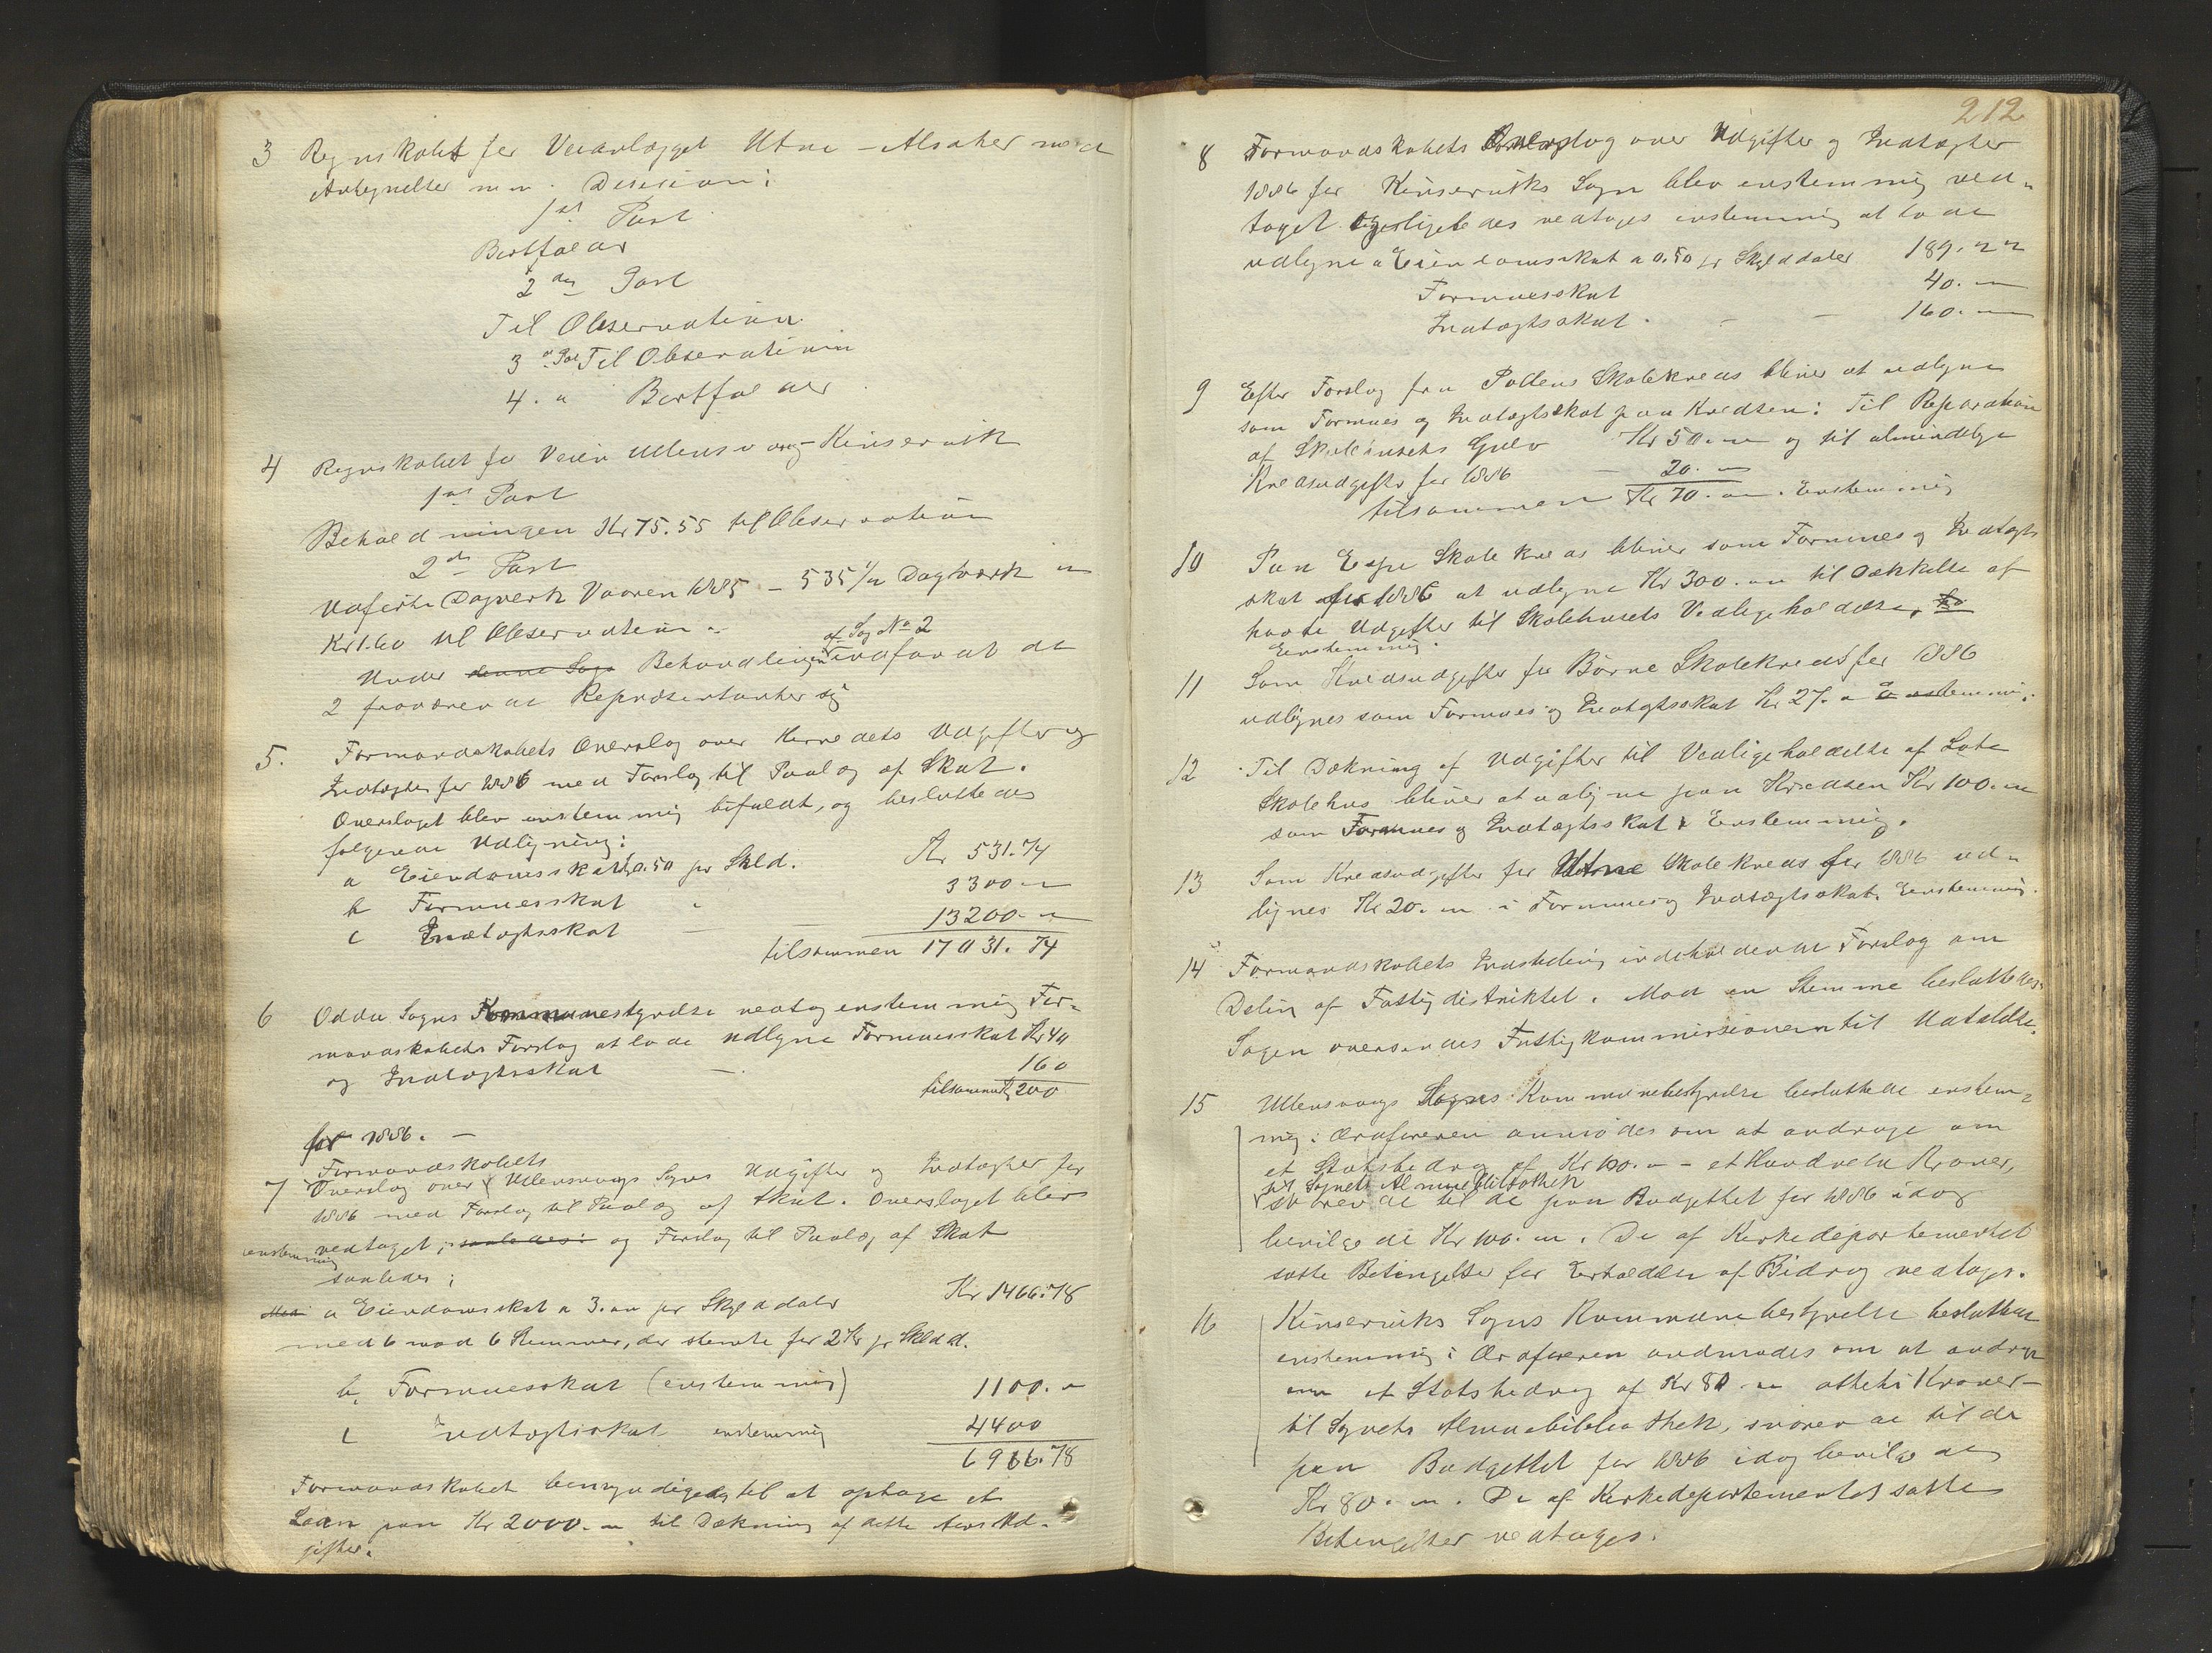 3 Regnskabet for Veianlægget Utne - Alsaker med
Antegnelser m. m. Decision:
1ste Post
Bortfalder
2den Post
Til Observation
3die Post Til Observation
4. " Bortfalder
4 Regnskabet for Veien Ullensvang - Kinservik
1ste Post
Beholdningen Kr 75.55 til Observation
2den Post
Udførte Dagverk Vaaren 1885 - 535 1/2 Dagværk a
Kr 1.60 til Observation.
Under denne Sags Behandlingen af Sag No 2 indfandt de
2 fraværende Repræsentanter sig
5. Formandskabets Overslag over Herredets Udgifter og
Indtægter for 1886 med Forslag til Paalæg af Skat.
Overslaget blev enstemmig bifaldt, og besluttedes
følgende Udligning:
a Eiendomsskat a 0.50 pr Skld. Kr 531.74
b Formuesskat - 3300. "
c Indtægtsskat - 13200. "
tilsammen 17031.74
6 Odda Sogns Kommunestyrelse vedtog enstemmig For-
mandskabets Forslag at lade udligne Formuesskat Kr 40
og Indtægtsskat - 160
tilsammen Kr 200
for 1886. -
Formandskabets
7 Overslag over Ullensvangs Sogns Udgifter og Indtægter for
1886 med Forslag til Paalæg af Skat. Overslaget blev
enstemmig vedtaget, saaledes: og Forslag til Paalæg af Skat
saaledes:
a Eiendomsskat a 3. " pr Skylddaler Kr 1466.78
med 6 mod 6 Stemmer, der stemte for 2 Kr pr Skldd.
b, Formuesskat (enstemmig) 1100. "
c Indtægtsskat enstemmig 4400
6966.78
Formandskabet bemyndigedes til at optage et
Laan paa Kr 2000. " til Dækning af dette Aars Ud-
gifter.
212
8 Formandskabets Overslag over Udgifter og Indtægter
1886 for Kinserviks Sogn blev enstemmig ved-
taget. ligeledes vedtoges enstemmig at lade
udligne a Eiendomsskat a 0.50 pr Skylddaler 189. "
Formuesskat 40. "
Indtægtsskat. - - 160. "
9 Efter Forslag fra Pollens Skolekreds bliver at udligne
som Formues og Indtægtsskat paa Kredsen: Til Reparation
af Skolehusets Gulv Kr 50. " og til almindelige
Kredsudgifter for 1886 - 20. "
tilsammen Kr 70. " . Enstemmig
10 Paa Espe Skolekreds bliver som Formues og Indtægts
skat for 1886 at udligne Kr 300. " til Dækkelse af
havte Udgifter til Skolehusets Vedligeholdelse.
Enstemmig.
11 Som Kredsudgifter for Børve Skolekreds for 1886
udlignes som Formues og Indtægtsskat Kr 27. " Enstemmig.
12 Til Dækning af Udgifter til Vedligeholdelse af Lote
Skolehus bliver at udligne paa Kredsen Kr 100. "
som Formues og Indtægtsskat. Enstemmig.
13 Som Kredsudgifter for Utne Skolekreds for 1886 ud-
lignes Kr 20. " i Formues og Indtægtsskat. Enstemmig.
14 Formandskabets Indstilling indeholdende Forslag om
Deling af Fattigdistriktet. Mod en Stemme besluttedes:
Sagen oversendes Fattigkommissionen til Udtalelse.
15 Ullensvangs Sogns Kommunebestyrelse besluttede enstem-
mig: Ordføreren anmodes om at andrage om
et Statsbidrag af Kr 100. " - et Hundrede Kroner,
til Sognets Almuebibliothek
svarende til de paa Budgettet for 1886 idag
bevilgede Kr 100. " . De af Kirkedepartementet
satte Betingelser for Erholdelse af Bidrag vedtages.
16 Kinserviks Sogns Kommunebestyrelse besluttede
enstemmig: Ordføreren anmodes om at andrage
om et Statsbidrag af Kr 80. " otteti Kroner -
til Sognets Almuebibliothek, svarende til de
paa Budgettet for 1886 idag bevilgede
Kr 80. " . De af Kirkedepartementet satte
Betingelser vedtages.